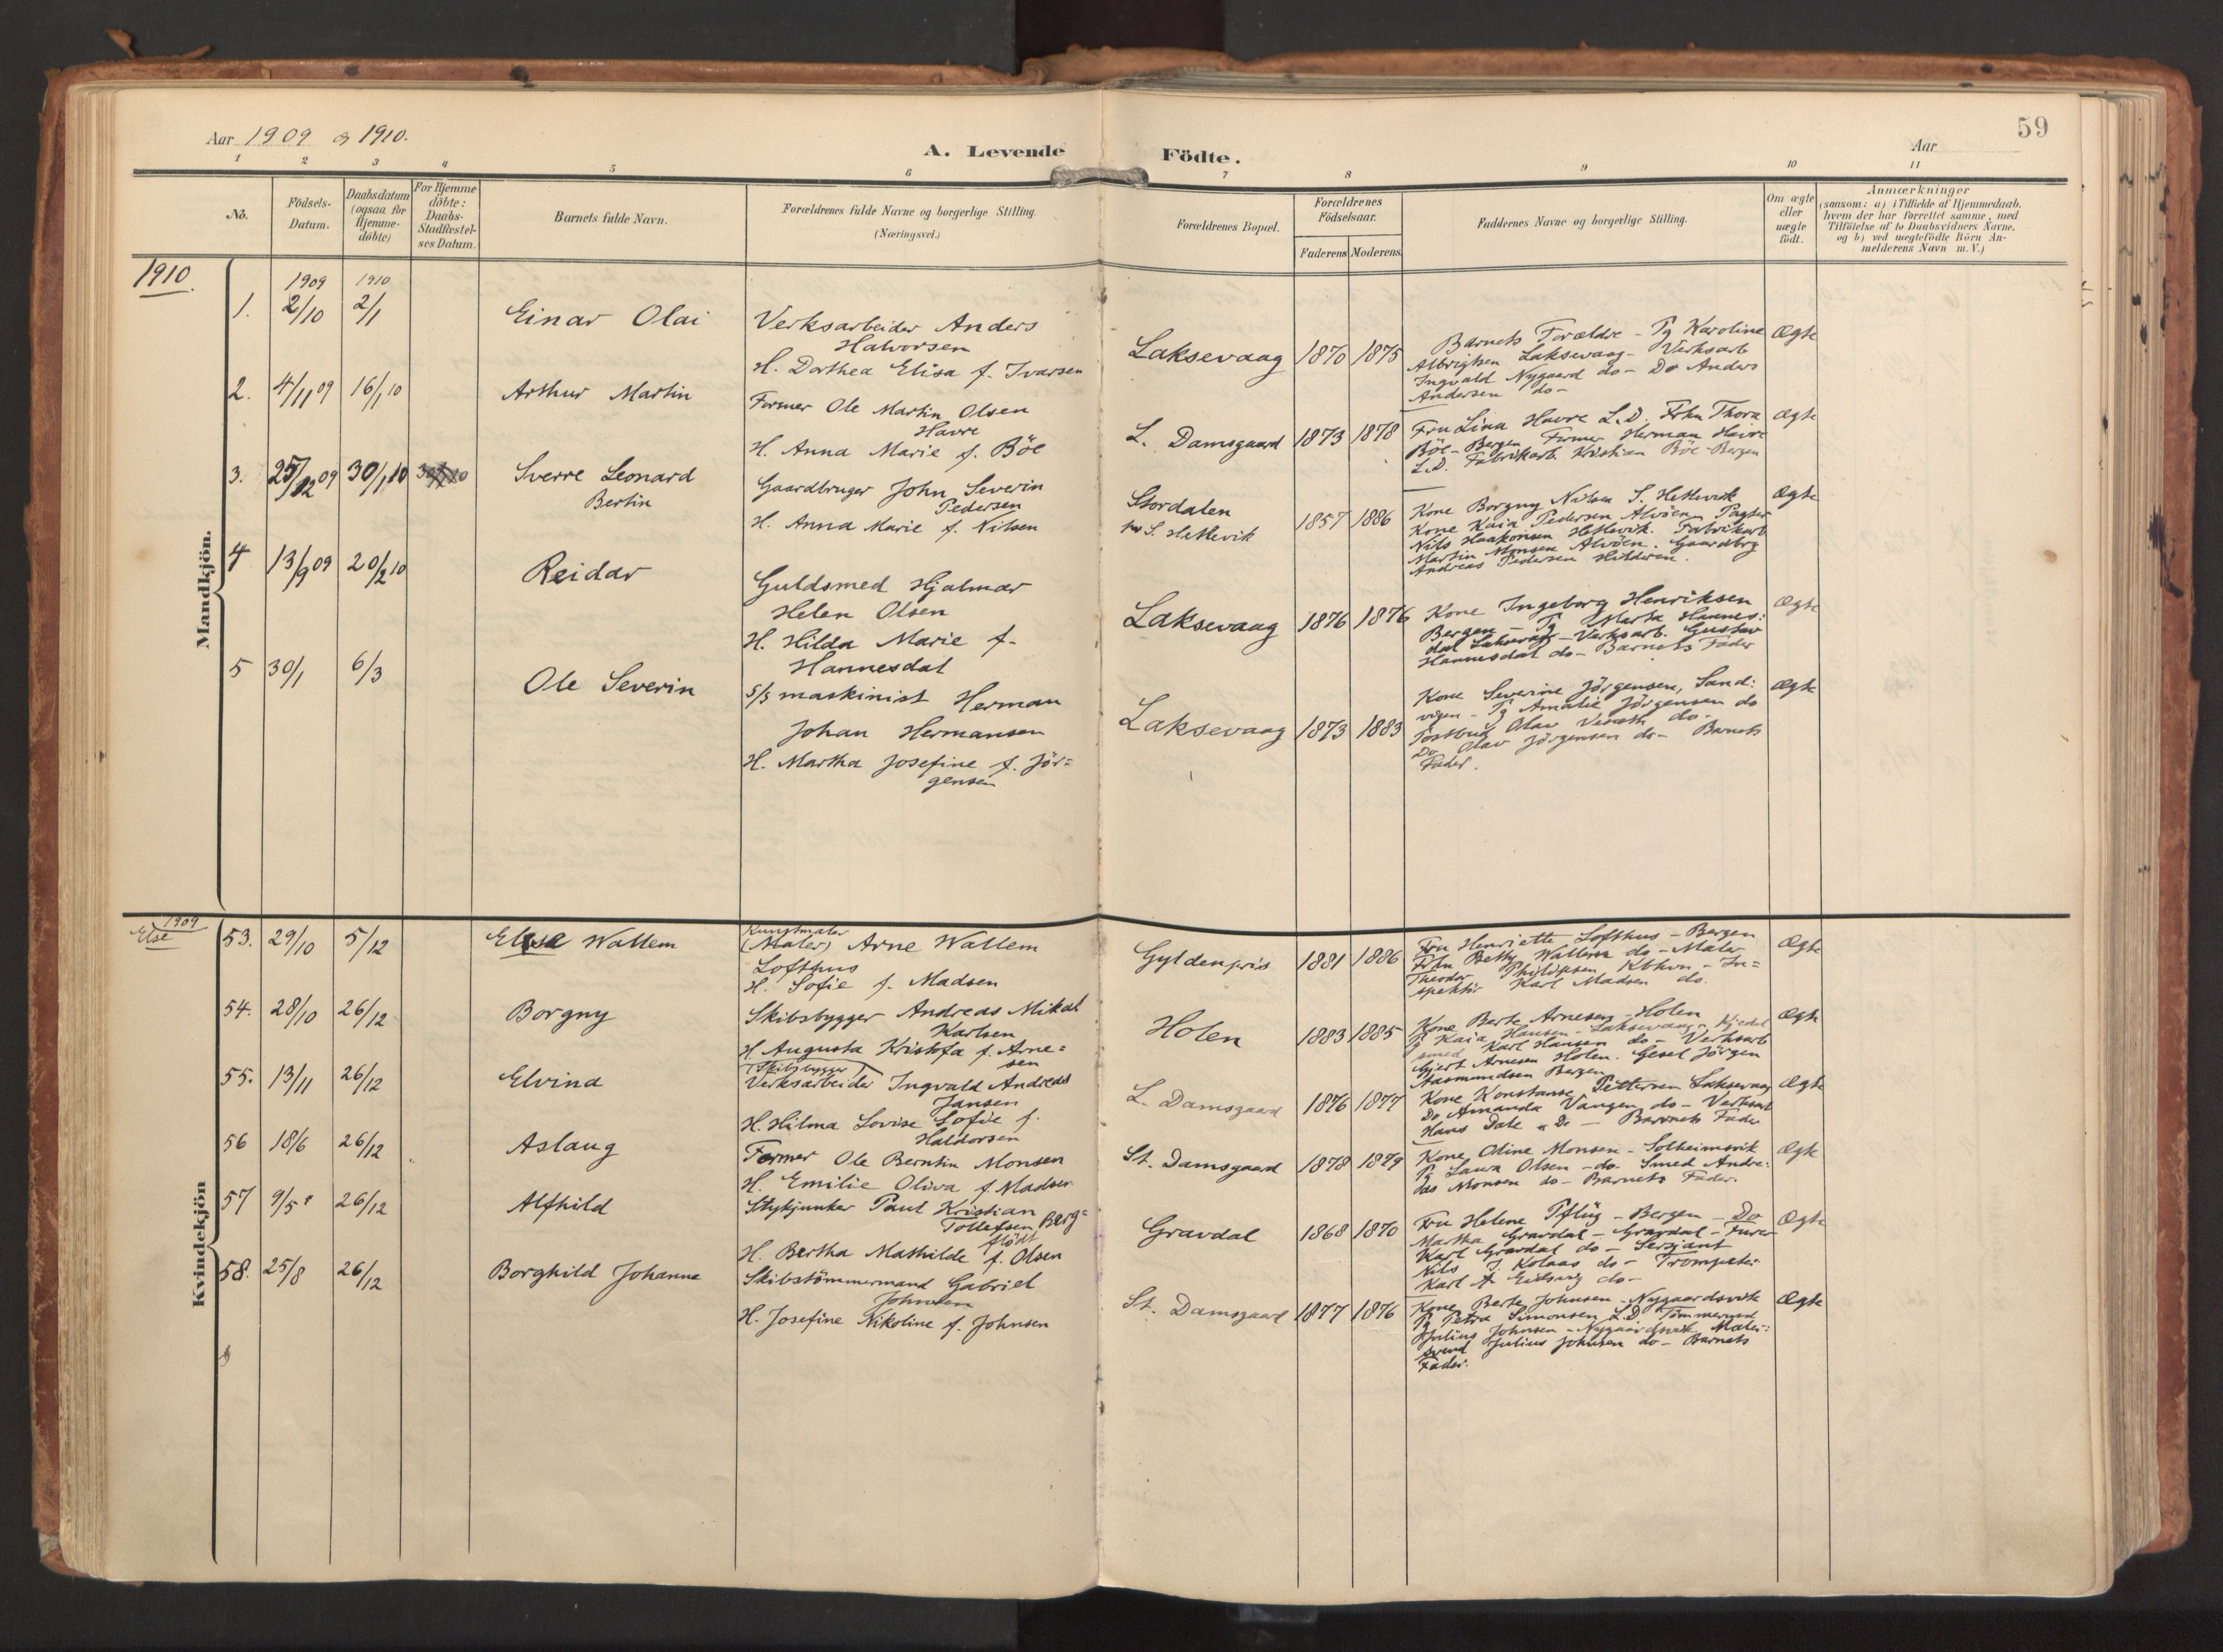 Aar 1909 og 1910.
A. Levende Födte.
Aar
59
1 2 3 4 5 6 7 8 9 10 11
No.
Födsels-
Datum.
Daabsdatum
(ogsaa for
Hjemme-
döbte)
For Hjemme
döbte:
Daabs-
Stadfæstel-
ses Datum.
Barnets fulde Navn.
Forældrenes fulde Navne og borgerlige Stilling.
(Næringsvei.)
Forældrenes Bopæl.
Forældrenes
Födselsaar.
Faderens Moderens
Faddernes Navne og borgerlige Stilling.
Om ægte
eller
uægte
födt.
Anmærkninger
(saasom: a) i Tilfælde af Hjemmedaab,
hvem der har forrettet samme, med
Tilföielse af to Daabsvidners Navne,
og b) ved uægtefödte Börn An-
melderens Navn m.V.)
Mandkjön.
1910
1909 1910
1. 2/10 2/1
Einar Olai
Verksarbeider Anders
Halvorsen
H. Dorthea Elisa f. Ivarsen
Laksevaag 1870 1875
Barnets Forældre - Pg Karoline
Albrigtsen Laksevaag - Verksarb
Ingvald Nygaard do - Do Anders
Andersen do -
Ægte
2. 4/11 09 16/1 10
Arthur Martin
Former Ole Martin Olsen
Havre
H. Anna Marie f. Böe
L. Damsgaard 1873 1878
Fru Lina Havre L.D. Frkn Thora
Böe - Bergen Former Herman Havre
L.D. Fabrikarb. Kristian Böe - Bergen
Ægte
3. 25/12 09 30/1 10
Sverre Leonard
Bertin
Gaardbruger John Severin
Pedersen
H. Anna Marie f. Nilsen
Stordalen
S. Hettevik
1857 1886
Kone Borgny Nilsen S. Hettevik
Kone Kaia Pedersen Alvöen
Nils Haakonsen Hettevik. Fabrikarb
Martin Monsen Alvöen. Gaardbrg
Andreas Pedersen
Ægte
4 13/9 09 20/2 10
Reidar
Guldsmed Hjalmar
Helen Olsen
H. Hilda Marie f.
Hannesdal
Laksevaag 1876 1876
Kone Ingeborg Henriksen
Bergen - Pg Marta Hannes:
dal Laksevaag - Verksarb. Gustav
Hannesdal do - Barnets Fader
Ægte
5 30/1 6/3
Ole Severin
S/S maskinist Herman
Johan Hermansen
H. Martha Josefine f. Jör=
gensen
Laksevaag 1873 1883
Kone Severine Jörgensen, Sand:
vigen - Pg Amalie Jörgensen do
Postbud Olav do.
Do Olav Jörgensen do - Barnets
Fader.
Ægte
Kvindekjön
1909
Else
53. 29/10 5/12
Else Wallem
Kunstmaler
(Maler) Arne Wallem
Lofthus
H. Sofie f. Madsen
Gyldenpris 1881 1886
Fru Henriette Lofthus - Bergen
Frkn Betty Wallem do - Maler
Theodor Philipsen Kbhvn - In=
spektör Karl Madsen do.
Ægte
54. 28/10 26/12
Borgny
Skibsbygger Andreas Mikal
Karlsen
H Augusta Kristofa f. Arne=
sen
Holen 1883 1885
Kone Berte Arnesen - Holen
Pg Kaia Hansen - Laksevaag - Kjedel
smed Karl Hansen do - Verksarb
Gjert Arnesen Holen. Gesel Jörgen
Aasmundsen Bergen
Ægte
55. 13/11 26/12
Elvina
(Skibsbygger)
Verksarbeider Ingvald Andreas
Jansen
H. Hilma Lovise Sofie f.
Haldorsen
L. Damsgaard 1876 1877
Kone Konstanse Pettersen Laksevaag
Do Amanda Vangen do - Verksarb
Hans Dale - Do - Barnets Fader
Ægte
56 18/6 26/12
Aslaug
Former Ole Berntin Monsen
H. Emilie Oliva f. Madsen
St. Damsgaard 1878 1879
Kone Oline Monsen - Solheimsvik
Pg Laura Olsen - do - Smed Andre:
as Monsen do - Barnets Fader.
Ægte
57 9/5 26/12
Alfhild
Stykjunker Paul Kristian
Tollefsen Berg=
flödt
H. Bertha Mathilde f. Olsen
Gravdal 1868 1870
Fru Helene Pflüg - Bergen - Do
Martha Gravdal - Gravdal - Furer
Karl Gravdal do - Sersjant
Nils J. Kolaas do - Trompeter
Karl A do -
Ægte
58. 25/8 26/12
Borghild Johanne
Skibstömmermand Gabriel
Johnsen
H. Josefine Nikoline f. Johnsen
St. Damsgaard 1877 1876
Kone Berte Johnsen - Nygaardsvik
Pg Petra Simonsen L.D. Tömmermd
Julius Johnsen - Nygaardsvik. Maler:
svend Julius Johnsen do - Barnets
Fader.
Ægte